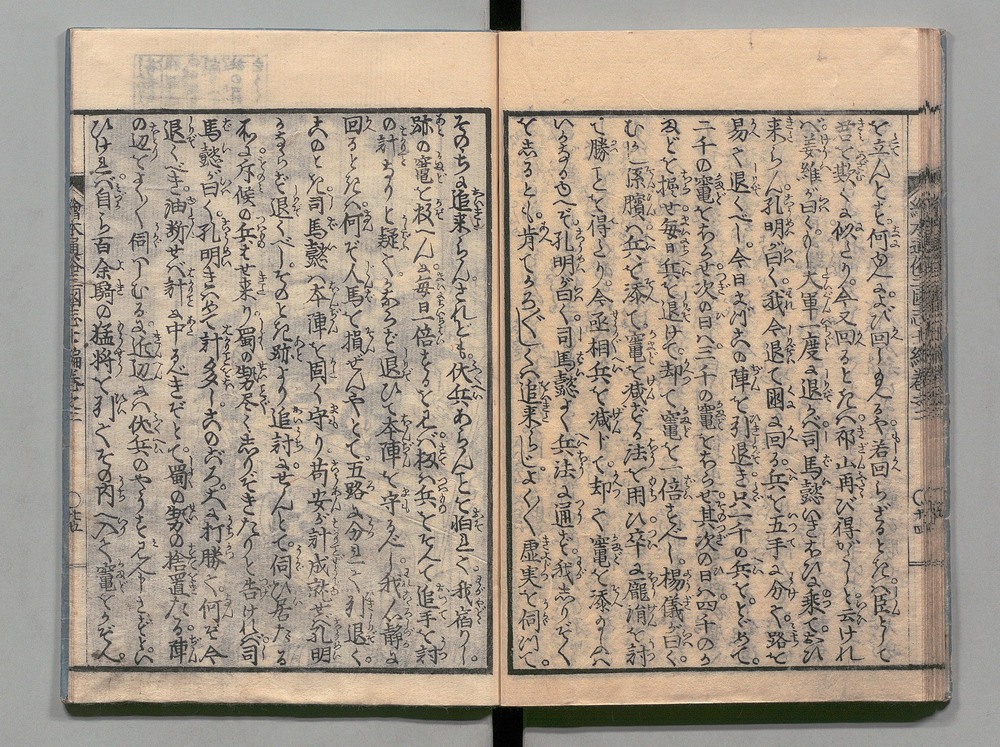 を立んとす何ゆへによび回し玉ふや若回らざるときハ臣として
君を欺くに似たり今又回るときハ祁山再び得がたしと云ければ
姜維が曰くもし大軍一度に退かバ司馬懿いきおひに乗て
来らん孔明が曰く我今退て國に回るに兵を五手に分て路を
易て退くべし今日まづこの陣を引退き只一千の兵をとどめて
二千の竈をほらせ次の日ハ三千の竈をほらせ其次の日ハ四千のか
まどを掘せ毎日兵を退けて却て竈を一倍すべし楊儀が曰く
むかし孫臏ハ兵を添て竈を減ずる法を用ひ卒に龐涓を討
て勝ことを得たり今丞相兵を減じて却て竈を添玉ふハ
いかなるゆへぞ孔明が曰く司馬懿よく兵法に通ず我しりぞく
をしるとも肯てかろ〲しくハ追来らじよく〱虚実を伺ひて
そのちに追来らんされども伏兵あらんことを怕れて我宿りし
跡の竈を数へんに毎日一倍するを見バ扨ハ兵をそへて追手を討
の計なりと疑てかならず退ひて本陣を守るべし我ハ静に
回るときハ何ぞ人馬を損ぜんやとて五路に分れて引退く
このとき司馬懿ハ本陣を固く守り苟安が計成就せバ孔明
かならず退くべしそのとき跡より追討にせんとて伺ひ居たる
に斥候の兵はせ来り蜀の勢尽くしりぞきたりと告けれバ司
馬懿が曰く孔明きハめて計多しこのごろ大に打勝て何ぞ今
退くべき油断せバ計に中るべきぞとて蜀の勢の捨置たる陣
の辺をよく伺ハしむるに近辺にハ伏兵のやうも見へずといひ
ければ自ら百余騎の猛将を引てその内へ入て竈をかぞへ
繪本通俗三國志七編巻之二